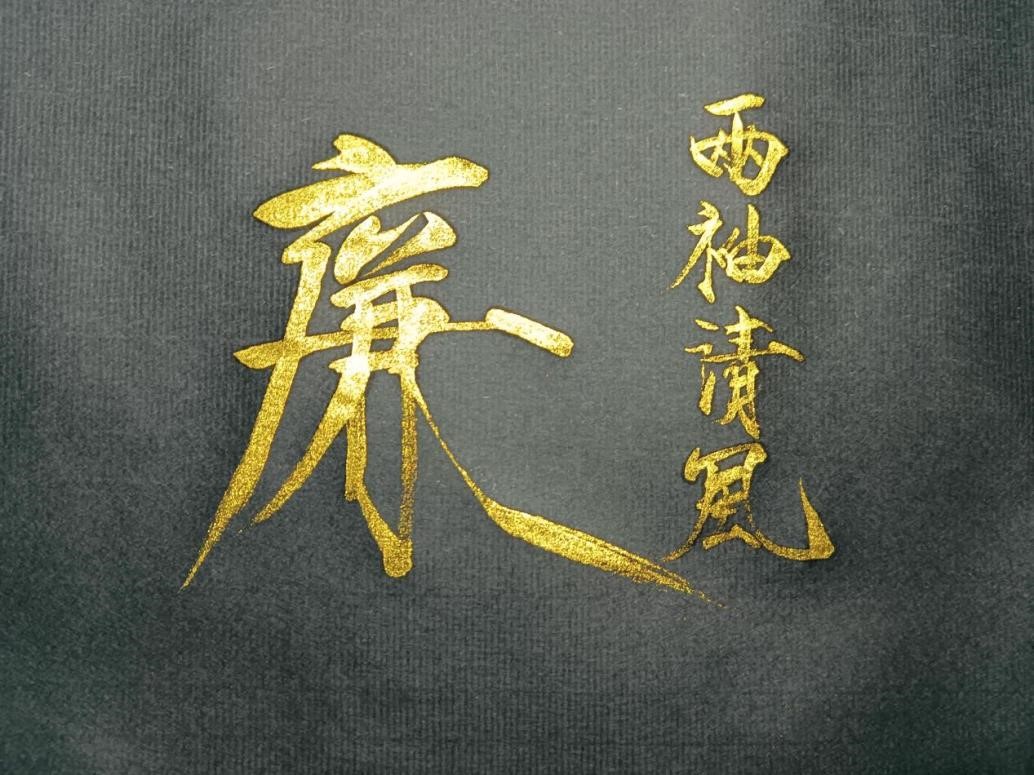 廉
两袖清风